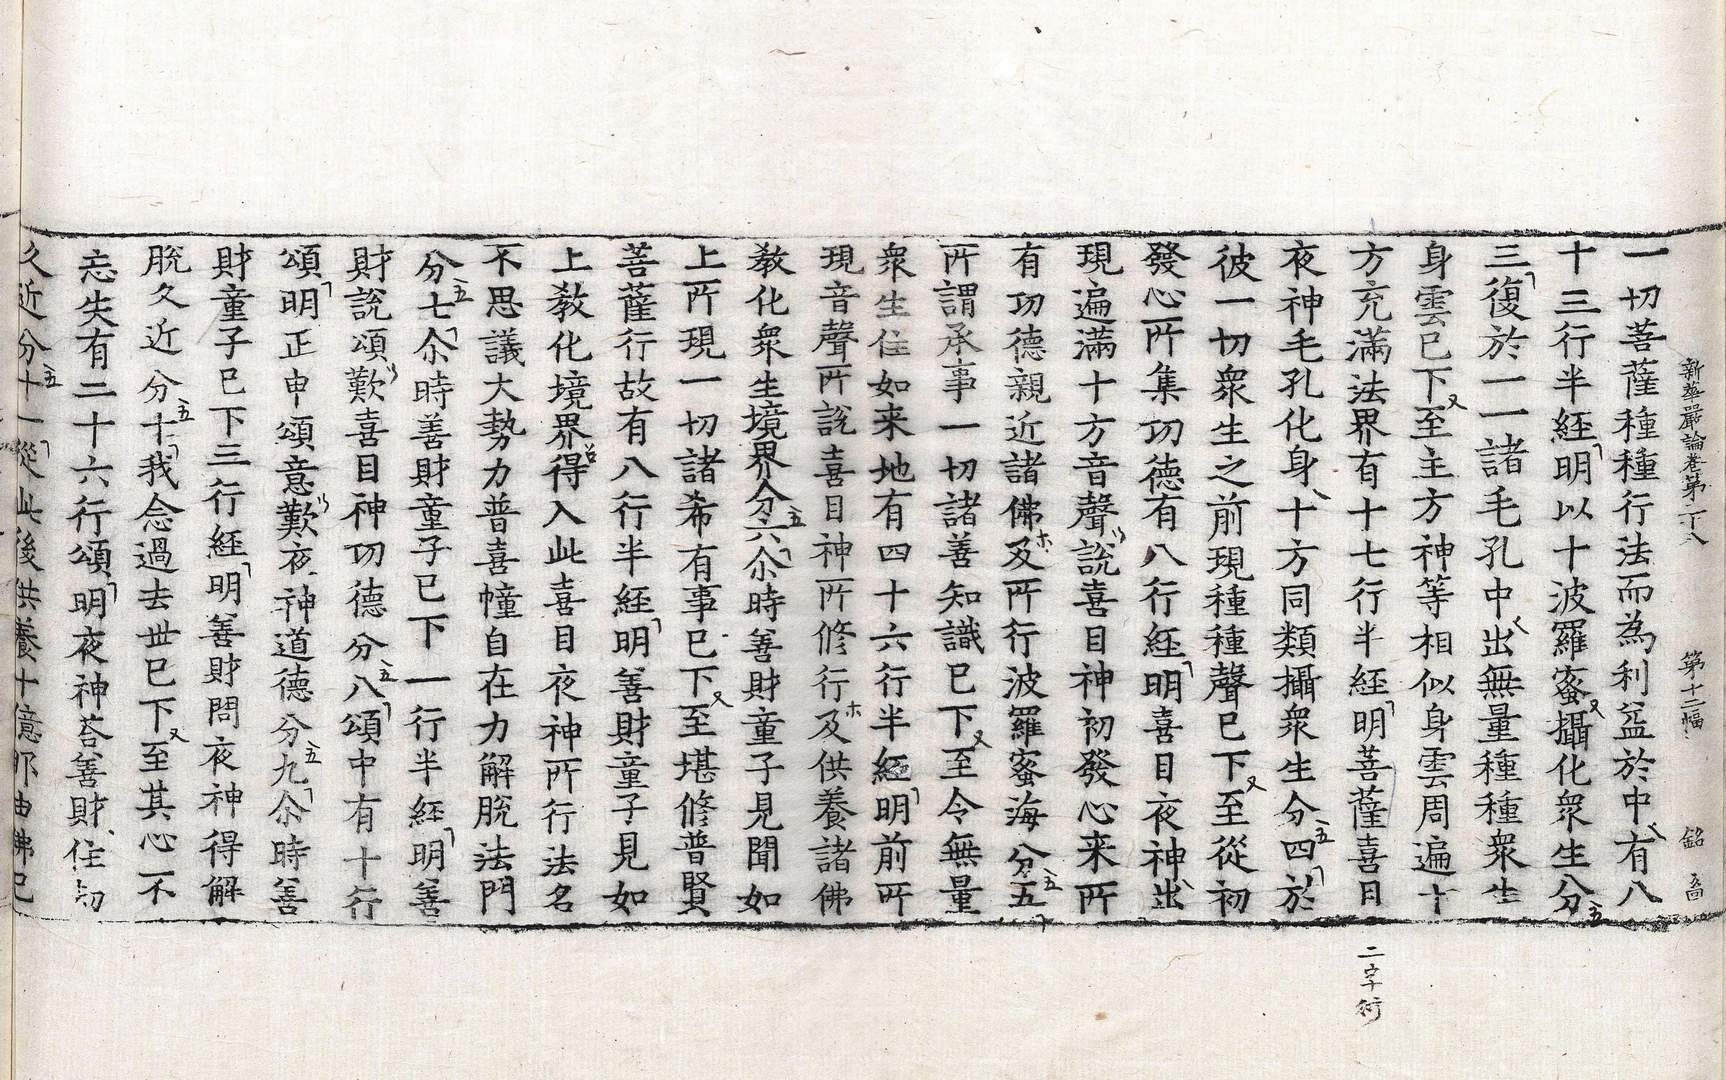 新華嚴論卷第二十八 第十三幅 銘
一切菩薩種種行法而為利益於中有八
十三行半経明以十波羅蜜攝化衆生分
三復於一一諸毛孔中出無量種種衆生
身雲已下至主方神等相似身雲周遍十
方充滿法界有十七行半経明菩薩喜目
夜神毛孔化身十方同類攝衆生分四於
彼一切衆生之前現種種聲已下至從初
發心所集功德有八行経明喜目夜神出
現遍滿十方音聲說喜目神初發心来所
有功德親近諸佛及所行波羅蜜海分五
所謂承事一切諸善知識已下至令無量
衆生住如来地有四十六行半経明前所
現音聲所說喜目神所修行及供養諸佛
教化衆生境界分六尒時善財童子見聞如
上所現一切諸希有事已下至堪修普賢
菩薩行故有八行半経明善財童子見如
上教化境界得入此喜目夜神所行法名
不思議大勢力普喜幢自在力解脫法門
分七尒時善財童子已下一行半経明善
財說頌歎喜目神功德分八頌中有十行
頌明正申頌意歎夜神道德分九尒時善
財童子已下三行経明善財問夜神得解
脫久近分十我念過去世已下至其心不
忘失有二十六行頌明夜神荅善財住劫
久近分十一從此後供養十億那由佛已
二字衍